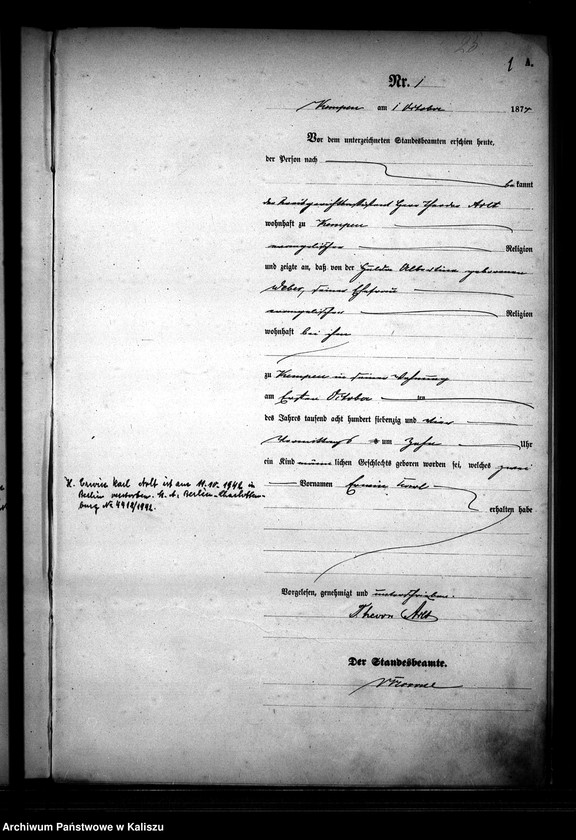 28
1 A.
Nr. 1
Kempen am 1 October 1874
Vor dem unterzeichneten Standesbeamten erschien heute,
der Person nach
bekannt
der Herr Theodor Arlt
wohnhaft zu Kempen
evangelischer Religion
und zeigte an, daß von der Hulda Albertine geborenen
Weber, seiner Ehefrau
evangelischer Religion
wohnhaft bei ihm
zu Kempen in seiner Wohnung
am Ersten October ten
des Jahres tausend acht hundert siebenzig und vier
Vormittags um Zehn Uhr
ein Kind männlichen Geschlechts geboren worden sei, welches zwei
Vornamen Erwin Karl
erhalten habe
Vorgelesen, genehmigt und unterschrieben.
Theodor Arlt
Der Standesbeamte.
H. Erwin Karl Arlt ist am 11.10.1942 in
Berlin verstorben. St. A. Berlin-Charlotten-
burg Nr. 4912/1942.
Archiwum Państwowe w Kaliszu